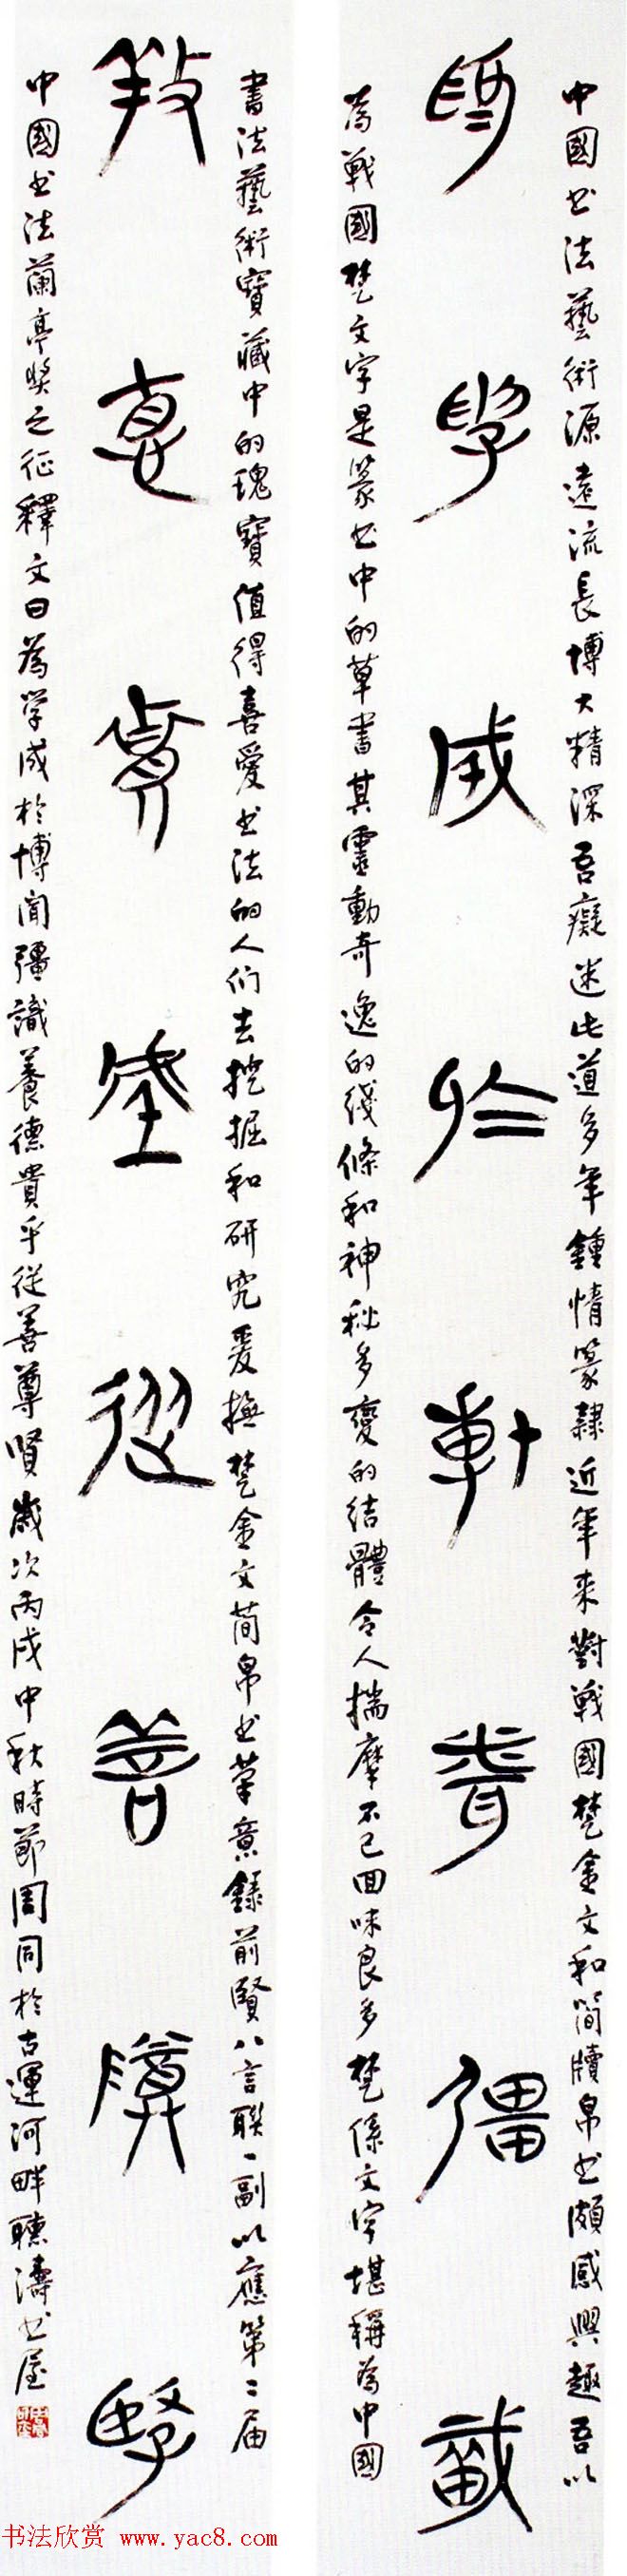 中國书法藝術源遠流長博大精深吾癡迷此道多年鍾情篆隸近年来對戰國楚金文和簡牘帛书頗感興趣吾以
為學成於博聞彊識
為戰國楚文字是篆书中的草書其靈動奇逸的綫條和神秘多變的结體令人揣摩不已回味良多楚係文字堪稱為中國
書法藝術寶藏中的瑰寶值得喜愛书法的人们去挖掘和研究爰撫楚金文简帛书筆意錄前賢八言聯一副以應第二届
養德貴乎從善尊賢
中國书法蘭亭奖之征釋文曰為学成於博闻彊識養德貴乎從善尊賢歲次丙戌中秋時節周同於古運河畔聽濤书屋
书法欣赏 www.yac8.com